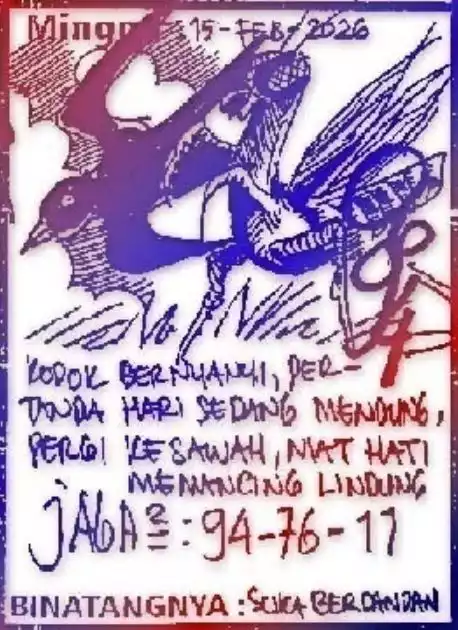 Minggu : 15-FEB-2026
KODOK BERNYANYI, PER-
TANDA HARI SEDANG MENDUNG,
PERGI KE SAWAH, NIAT HATI
MEMANCING LINDUNG
JAGA2 : 94-76-17
BINATANGNYA : SUKA BERDANDAN